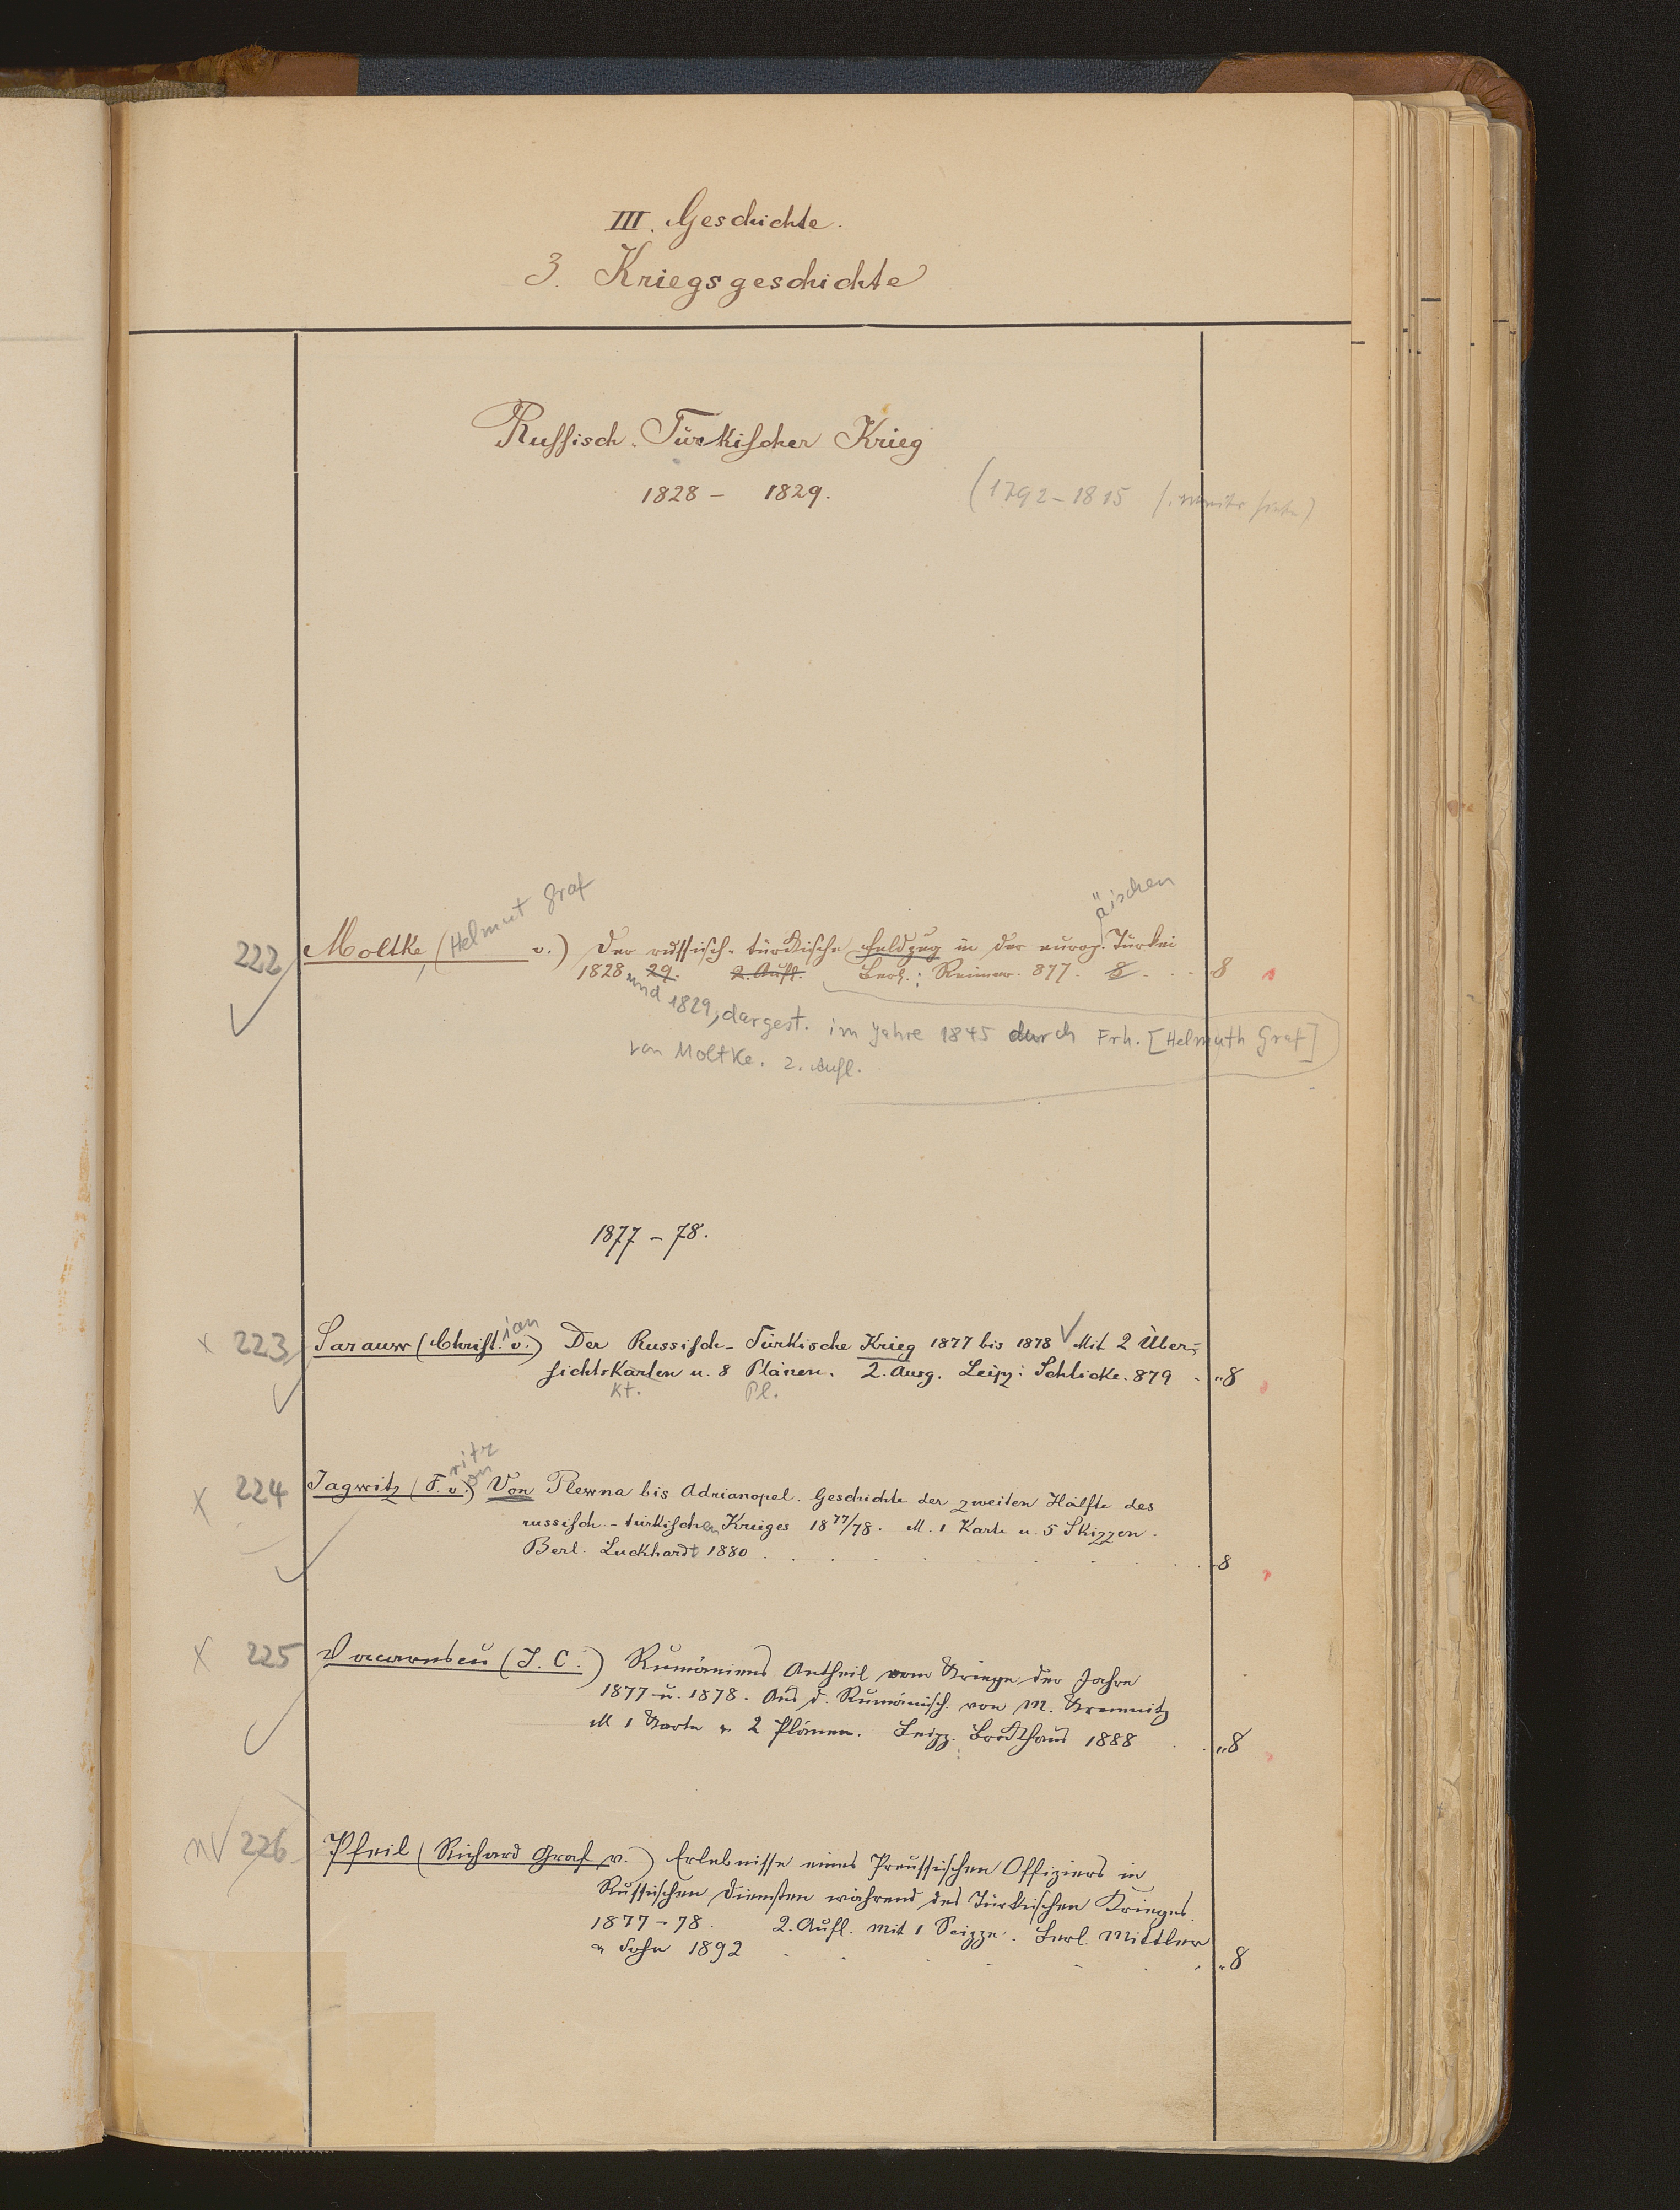 III. Geschichte.
3. Kriegsgeschichte
Russisch-Türkischer Krieg
1828 - 1829.
(1792-1815
222 Moltke, (Helmut Graf v.) Der russisch-türkische Feldzug in der europ.äischen Türkei
1828 und 29. 2. Aufl. Berl.: Reimer. 877. 8 . . . 8
1829, dargest. im Jahre 1845 durch Frh. [Helmuth Graf]
von Moltke. 2. Aufl.
1877 - 78.
x 223 Sarauw (Christ.ian v.) Der Russisch-Türkische Krieg 1877 bis 1878 Mit 2 Über-
sichtskarten u. 8 Plänen. 2. Ausg. Leipz: Schlicke. 879 . „8
Kt. Pl.
x 224 Jagwitz (F.ritz v.on) Von Plewna bis Adrianopel. Geschichte der zweiten Hälfte des
russisch-türkischen Krieges 1877/78. M. 1 Karte u. 5 Skizzen.
Berl. Luckhardt 1880 . . . 8
x 225 Vacarescu (T. C.) Rumäniens Antheil vom Kriege der Jahre
1877 u. 1878. Aus d. Rumänisch. von M. Kremnitz
M 1 Karte u 2 Plänen. Leipz. Brockhaus 1888 . . „8
nv 226 Pfeil (Richard Graf v.) Erlebnisse eines Preussischen Offiziers in
Russischen Diensten während des Türkischen Krieges.
1877-78. 2. Aufl. Mit 1 Scizze. Berl. Mittler
u Sohn 1892 . . . „8